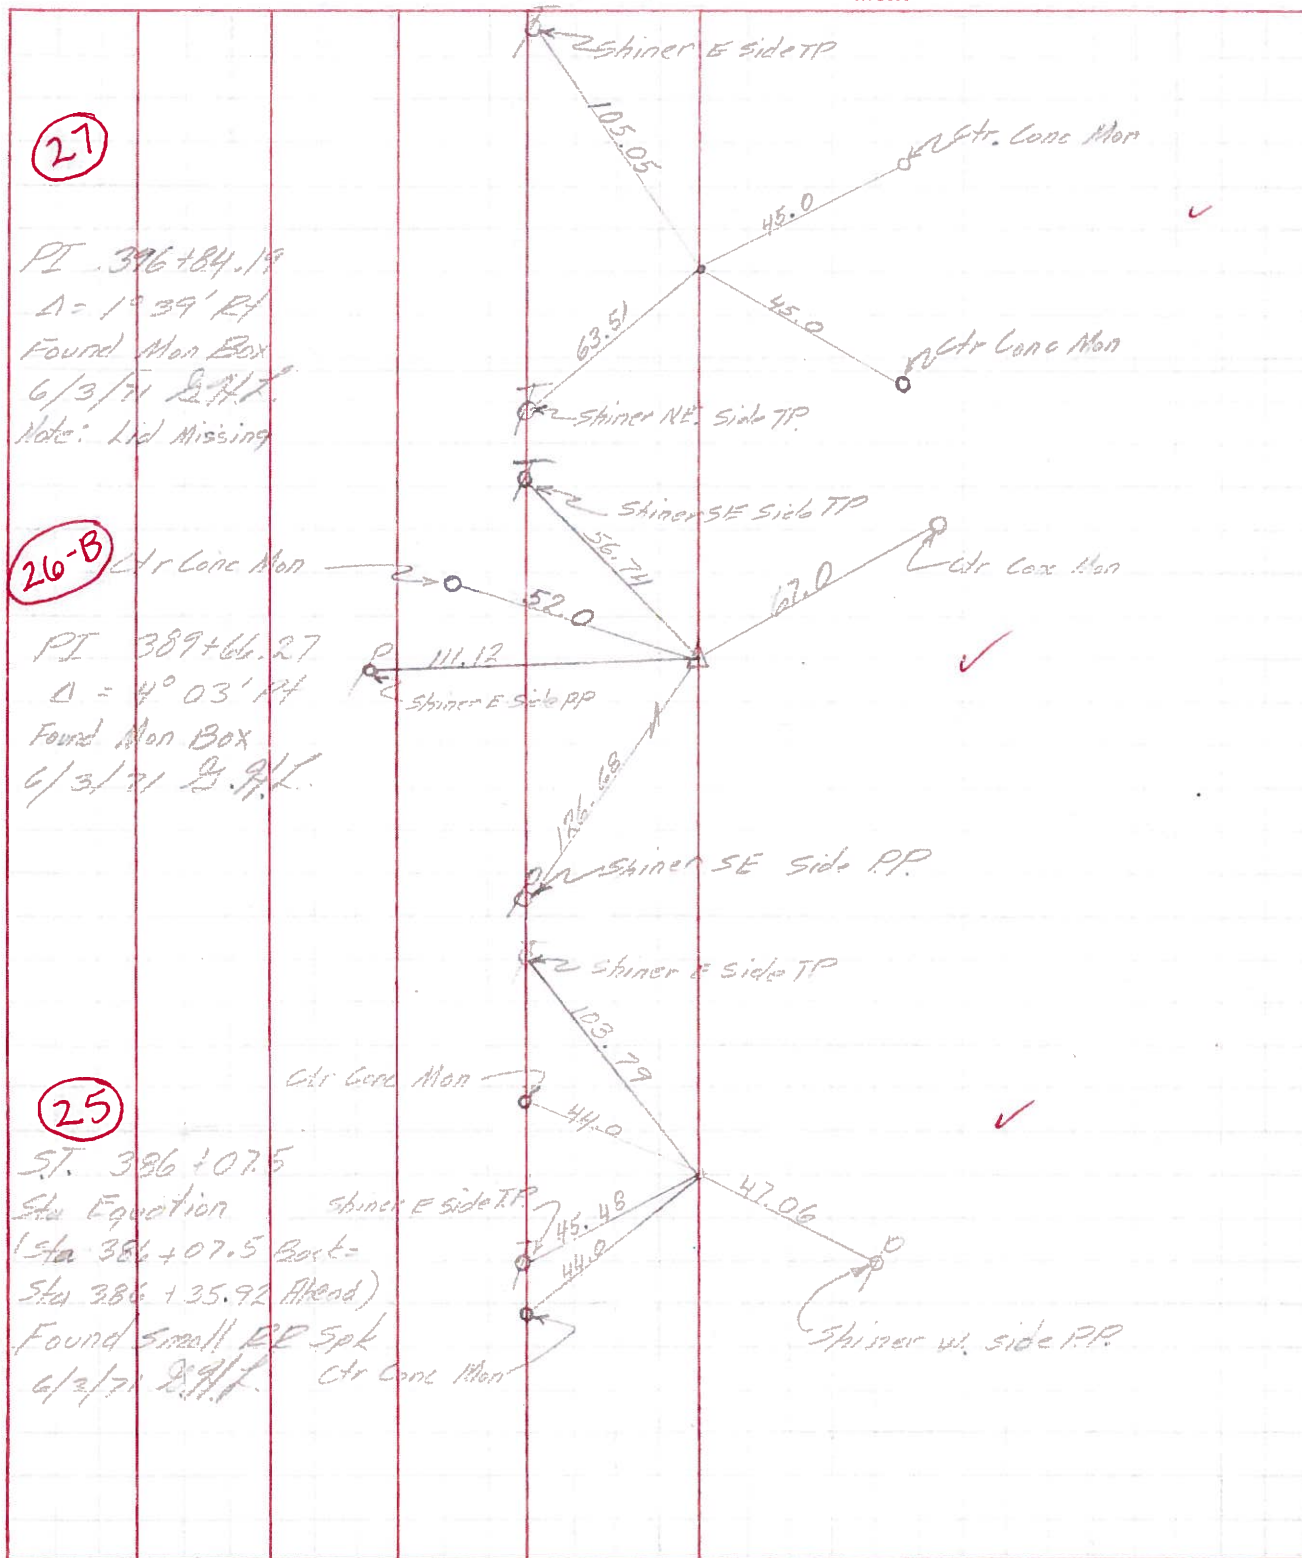 Shiner E Side TP
105.05
27
Ctr. Conc Mon
45.0
PI 396+84.19
Δ = 1° 39' Rt
Found Mon Box
6/3/71
Note: Lid Missing
63.51
45.0
Ctr Conc Mon
Shiner NE. Side TP.
Shiner SE Side TP
56.74
26-B
Ctr Conc Mon
52.0
67.0
Ctr Conc Mon
PI 389+66.27
Δ = 4° 03' Rt
Found Mon Box
6/3/71
P
111.12
Shiner E Side PP
126.68
Shiner SE Side P.P.
Shiner E Side TP
103.79
Ctr Conc Mon
44.0
25
S.T. 386+07.5
Sta Equation
(Sta 386+07.5 Back =
Sta 386+35.92 Ahead)
Found Small RR Spk
6/3/71
Shiner E Side T.P.
45.48
44.0
47.06
Ctr Conc Mon
Shiner W. side P.P.